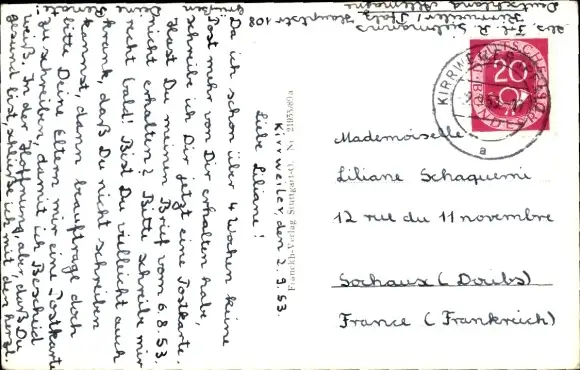 Kirrweiler, den 2.9.53.
Liebe Liliane!
Da ich schon über 4 Wochen keine
Post mehr von Dir erhalten habe,
schreibe ich Dir jetzt eine Postkarte.
Hast Du meinen Brief vom 6.8.53.
nicht erhalten? Bitte schreibe mir
recht bald! Bist Du vielleicht auch
krank, daß Du nicht schreiben
kannst, dann beauftrage doch
bitte Deine Eltern mir eine Postkarte
zu schreiben, damit ich Bescheid
weiß. In der Hoffnung, aber, daß Du
gesund bist, schließe ich mit den herzl.
Grüßen
Deine
Renate
Abs. Frl. R.
Kirrweiler/Pfalz Hauptstr 108
Deutschland Allemagne
Franckh-Verlag Stuttgart-O. Nr.
DEUTSCHE BUNDESPOST
20
KIRRWEILER
a
Mademoiselle
Liliane Schaquemi
12 rue du 11 novembre
Sochaux (Doubs)
France (Frankreich)